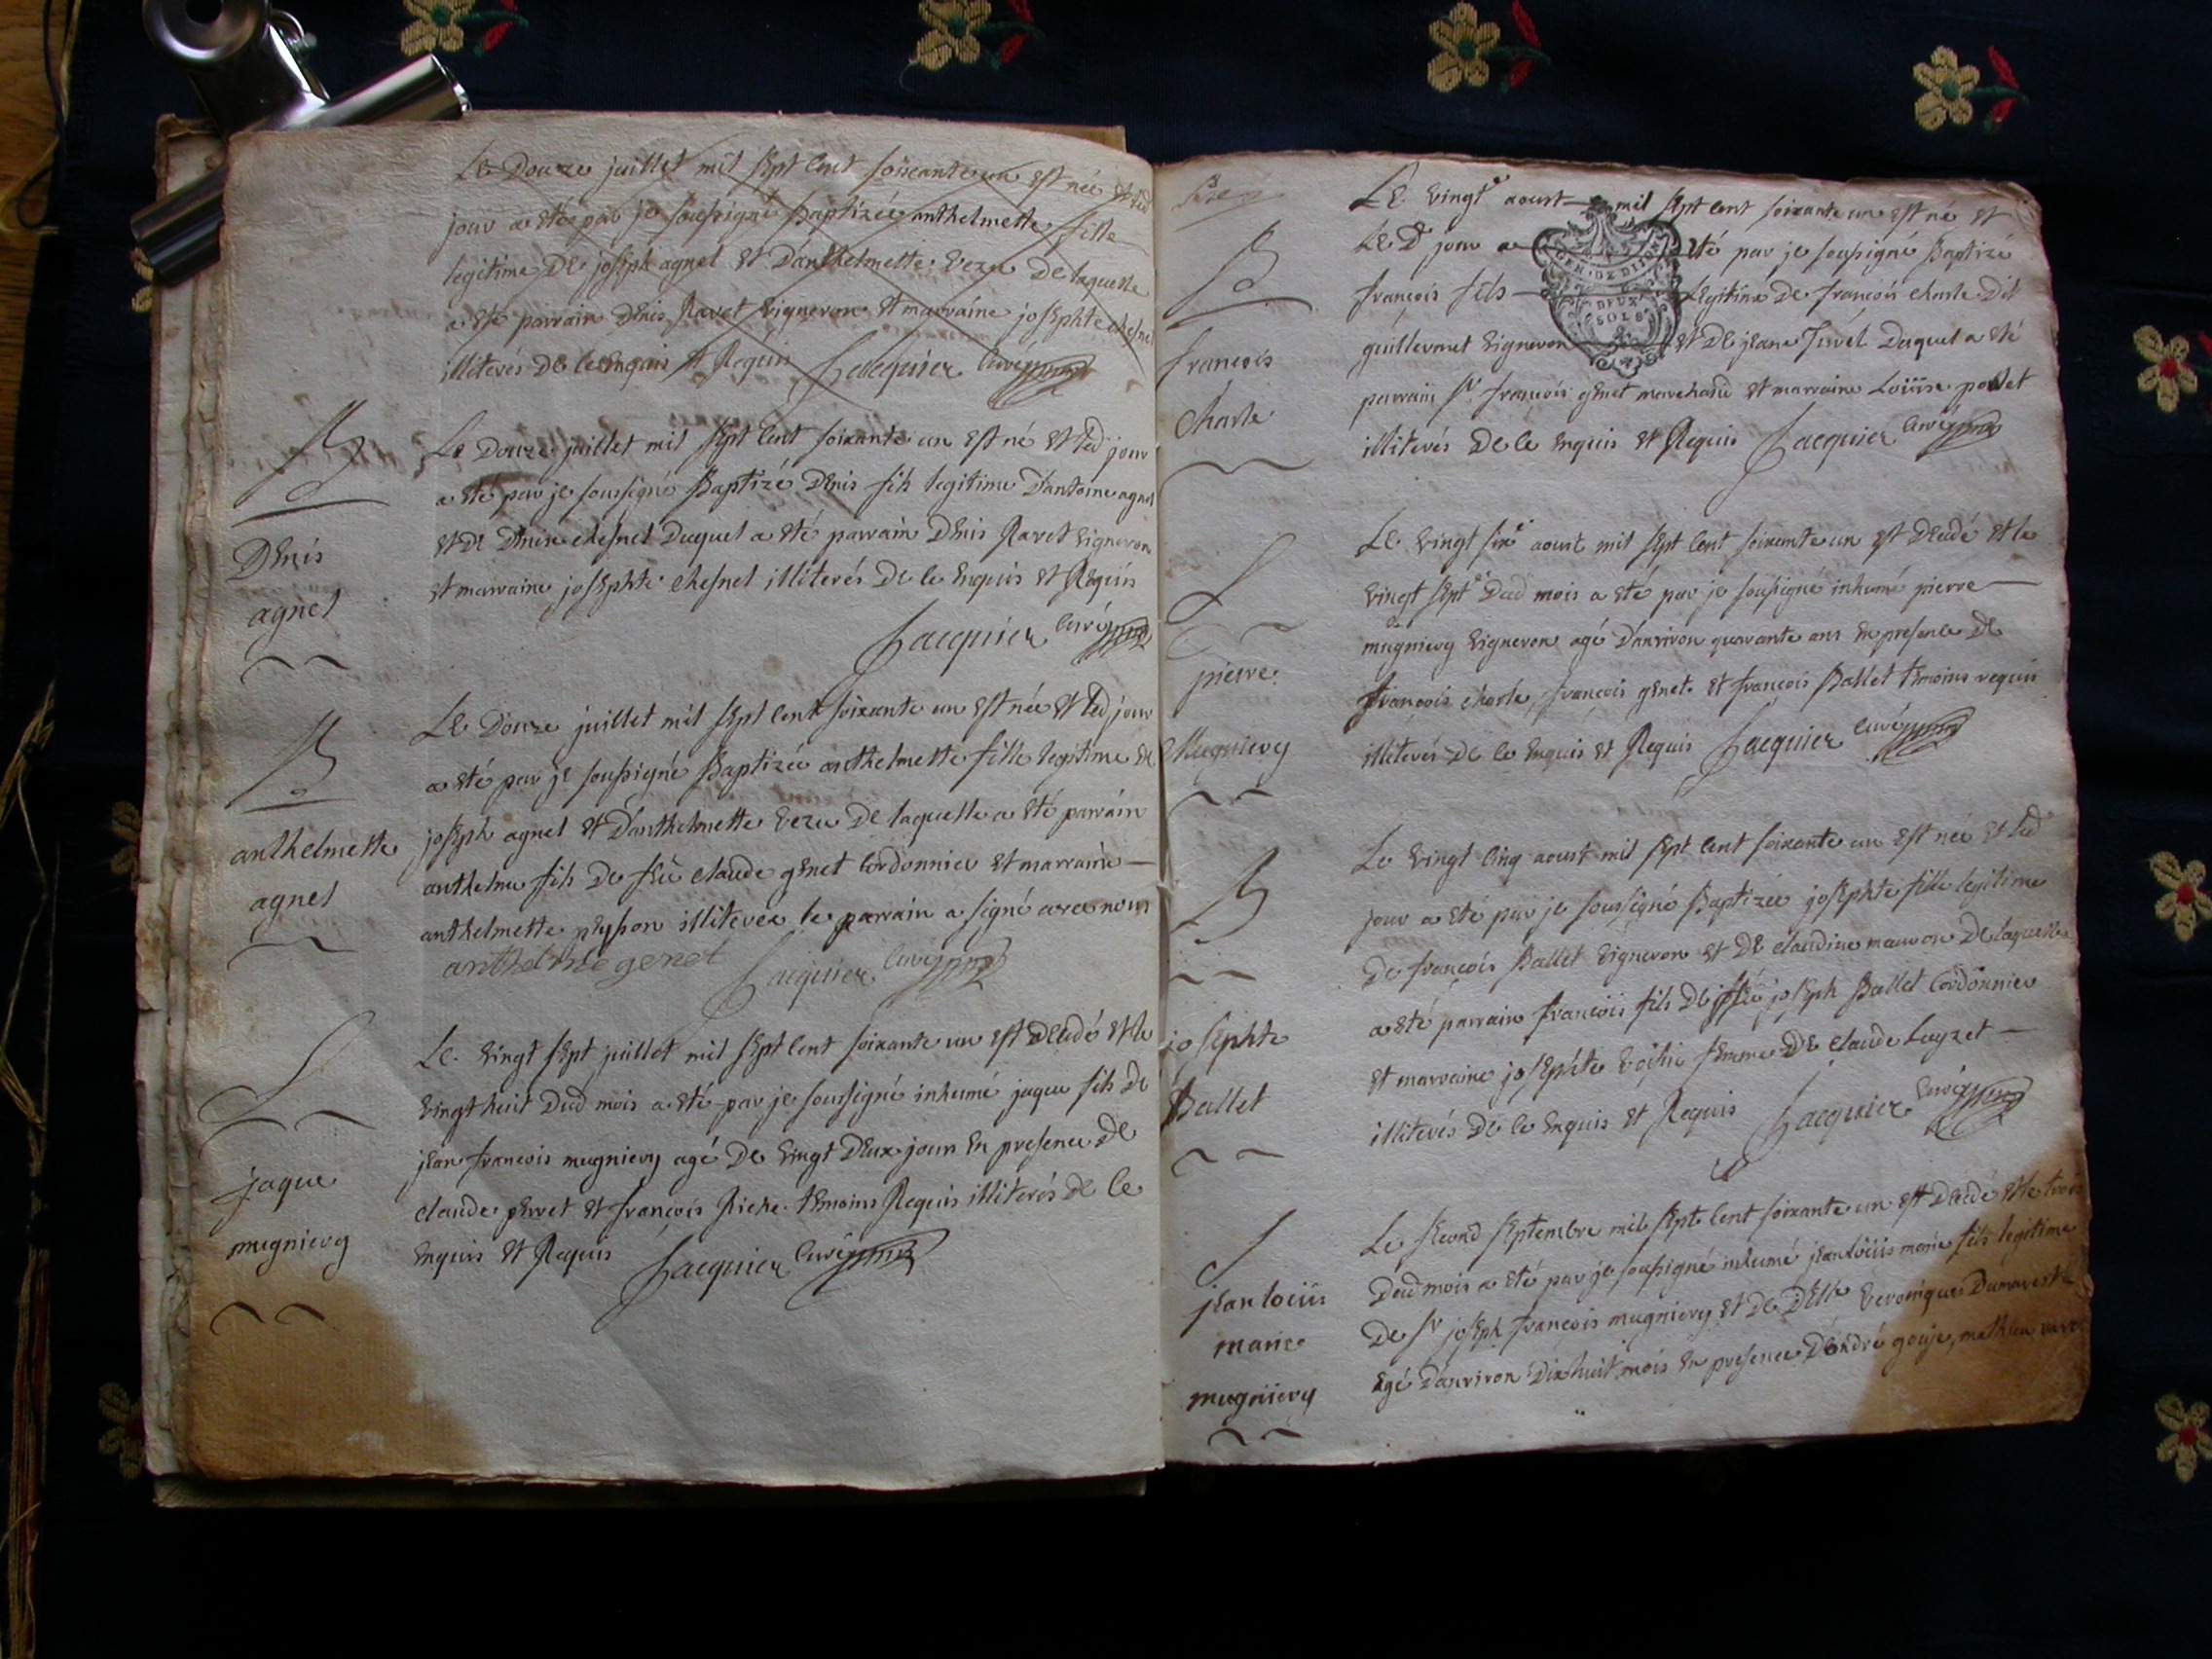 Le Douze juillet mil sept cent soixante un est née et led
jour a été par je soussigné Baptizée anthelmette fille
legitime De joseph agnel et D'anthelmette vezu De laquelle
a été parrain Denis Ravet vigneron et marraine josephte chesnel
illiterés De ce enquis et Requis Jacquier curé
B
Denis
agnel
Le Douze juillet mil sept cent soixante un est né et led jour
a été par je soussigné Baptizé Denis fils legitime D'antoine agnel
et De Denise chesnel Duquel a été parrain Denis Ravet vigneron
et marraine josephte chesnel illiterés De ce enquis et Requis
Jacquier curé
B
anthelmette
agnel
Le Douze juillet mil sept cent soixante un est née et led jour
a été par je soussigné Baptizée anthelmette fille legitime De
joseph agnel et D'anthelmette vezu De laquelle a été parrain
anthelme fils De feu claude genet cordonnier et marraine
anthelmette peysson illiterée le parrain a signé avec nous
anthelme genet Jacquier curé
S
jaque
mugniery
Le vingt sept juillet mil sept cent soixante un est Decedé et le
vingt huit Dud mois a été par je soussigné inhumé jaque fils de
jean francois mugniery agé De vingt Deux jours en presence De
claude perret et francois Riche temoins Requis illiterés de ce
enquis et Requis Jacquier curé
B
francois
charle
Le vingt e aoust mil sept cent soixante un est né et
Le D jour a été par je soussigné Baptizé
françois fils Legitime De françois charle Dit
guillermet vigneron et De jeane Juvel Duquel a été
parrain Sr françois genet marchand et marraine Loüise
illiterés De ce enquis et Requis Jacquier curé
GEN. DE DIJON
DEUX
SOLS
S
pierre
Mugniery
Le vingt six e aoust mil sept cent soixante un est Decedé et le
vingt sept e Dud mois a été par je soussigné inhumé pierre
mugniery vigneron agé D'anviron quarante ans en presence De
françois charle, françois genet et françois Ballet temoins requis
illiterés De ce enquis et Requis Jacquier curé
B
josephte
Ballet
Le vingt cinq aoust mil sept cent soixante un est née et led
jour a été par je soussigné Baptizée josephte fille legitime
De françois Ballet vigneron et De claudine mauron De laquelle
a été parrain françois fils De feu joseph Ballet Cordonnier
et marraine josephte voisin femme De claude Luyzet
illiterés De ce enquis et Requis Jacquier curé
S
jean loüis
marie
mugniery
Le second septembre mil sept cent soixante un est Decedé et le trois
Dud mois a été par je soussigné inhumé jean loüis marie fils legitime
De Sr joseph francois mugniery et De Delle veronique Dumarest
agé D'anviron Dix huit mois en presence D'andré gouje, mathieu